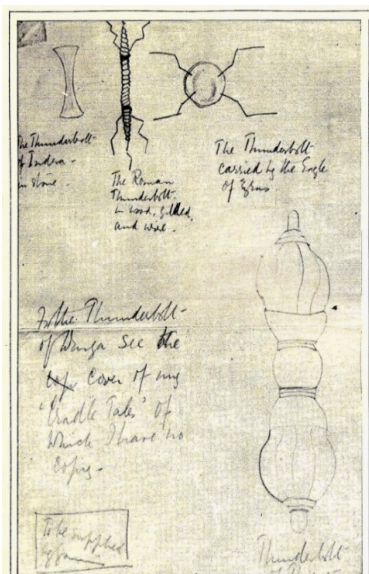 The Thunderbolt
of Indra -
in stone.
The Roman
Thunderbolt
in wood, gilded,
and wire.
The Thunderbolt
carried by the Eagle
of Zeus
For the Thunderbolt
of Durga see the
cover of my
"Cradle Tales" of
which I have no
copy.
To be supplied
Thunderbolt